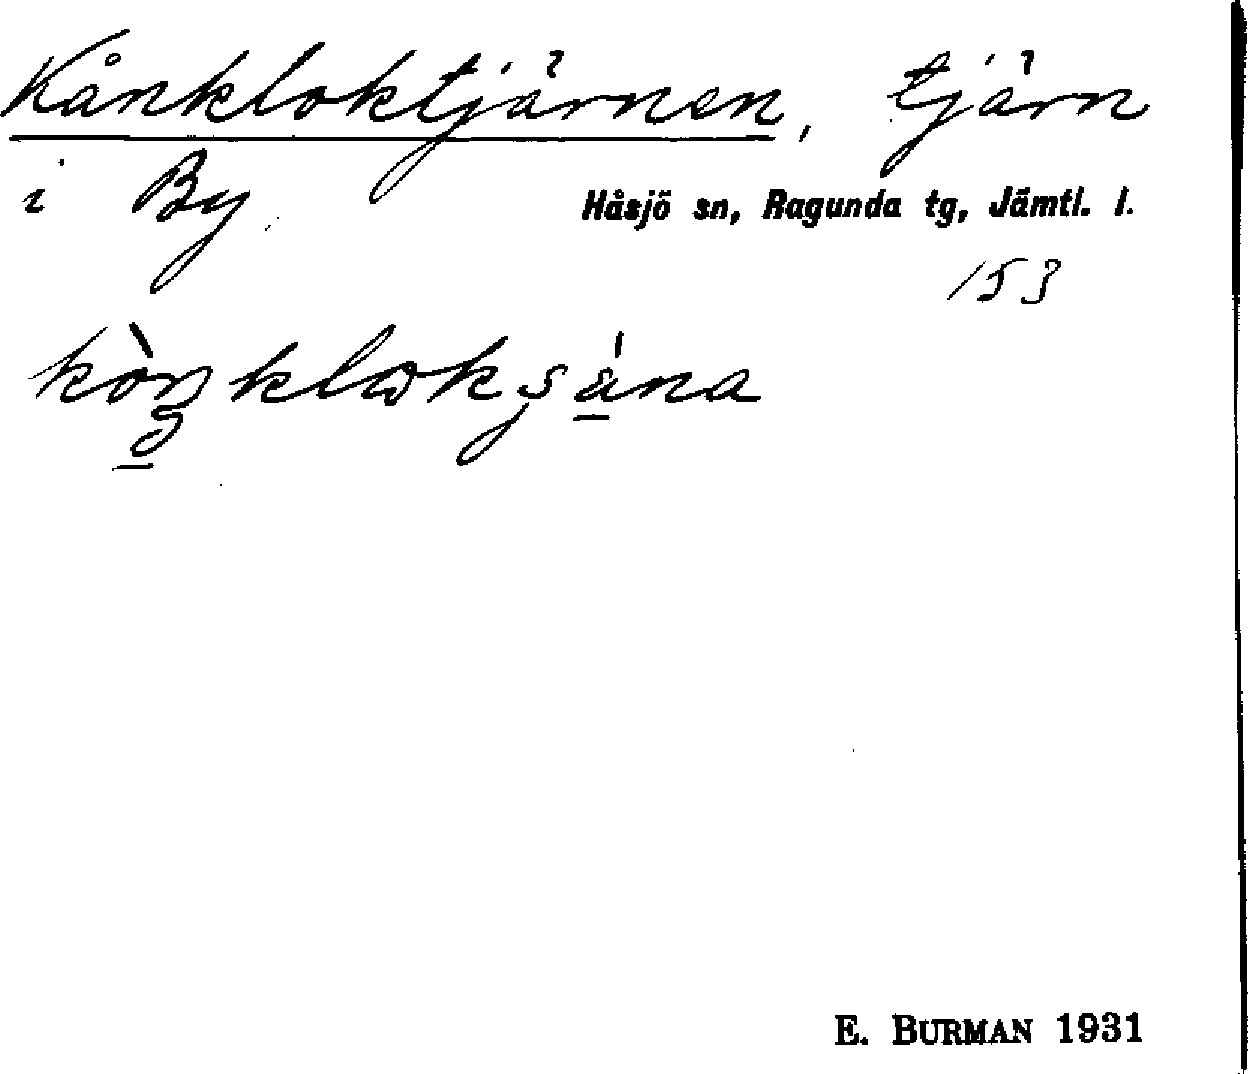 Kånkloktjärnen, tjärn
i By
Håsjö sn, Ragunda tg, Jämtl. l.
153
E. BURMAN 1931